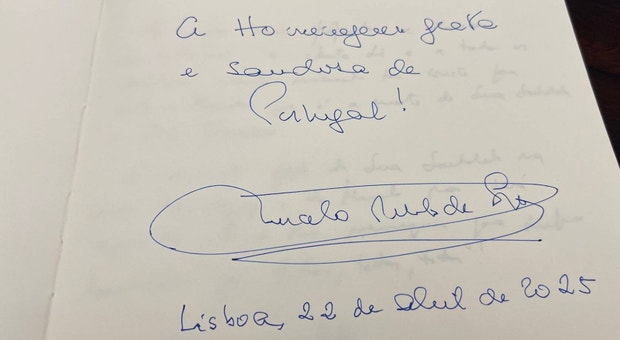 A Homenagem grata
e saudosa de
Portugal!
Marcelo Rebelo de Sousa
Lisboa, 22 de abril de 2025